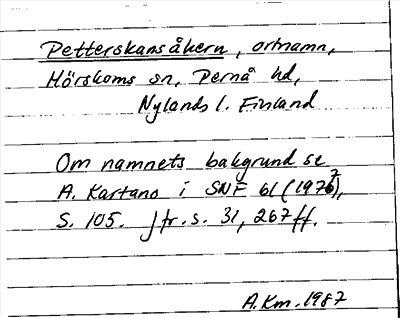 Petterskansåkern, ortnamn,
Mörskoms sn, Pernå hd,
Nylands l. Finland
Om namnets bakgrund se
A. Kartano i SNF 61 (1976),
7
S. 105. Jfr. s. 31, 267 ff.
A.Km. 1987